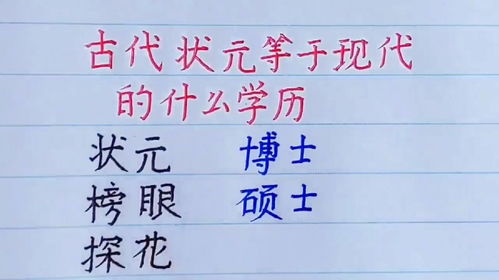 古代状元等于现代
的什么学历
状元 博士
榜眼 硕士
探花